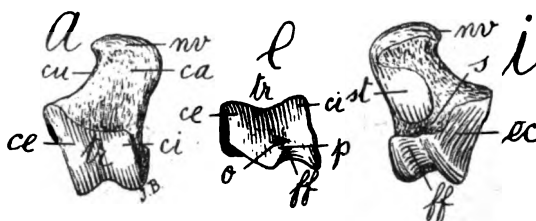 a
nv
cu
ca
ce
tr
ci
J.B.
l
tr
ce
ci
o
p
ff
i
nv
st
s
ec
ff